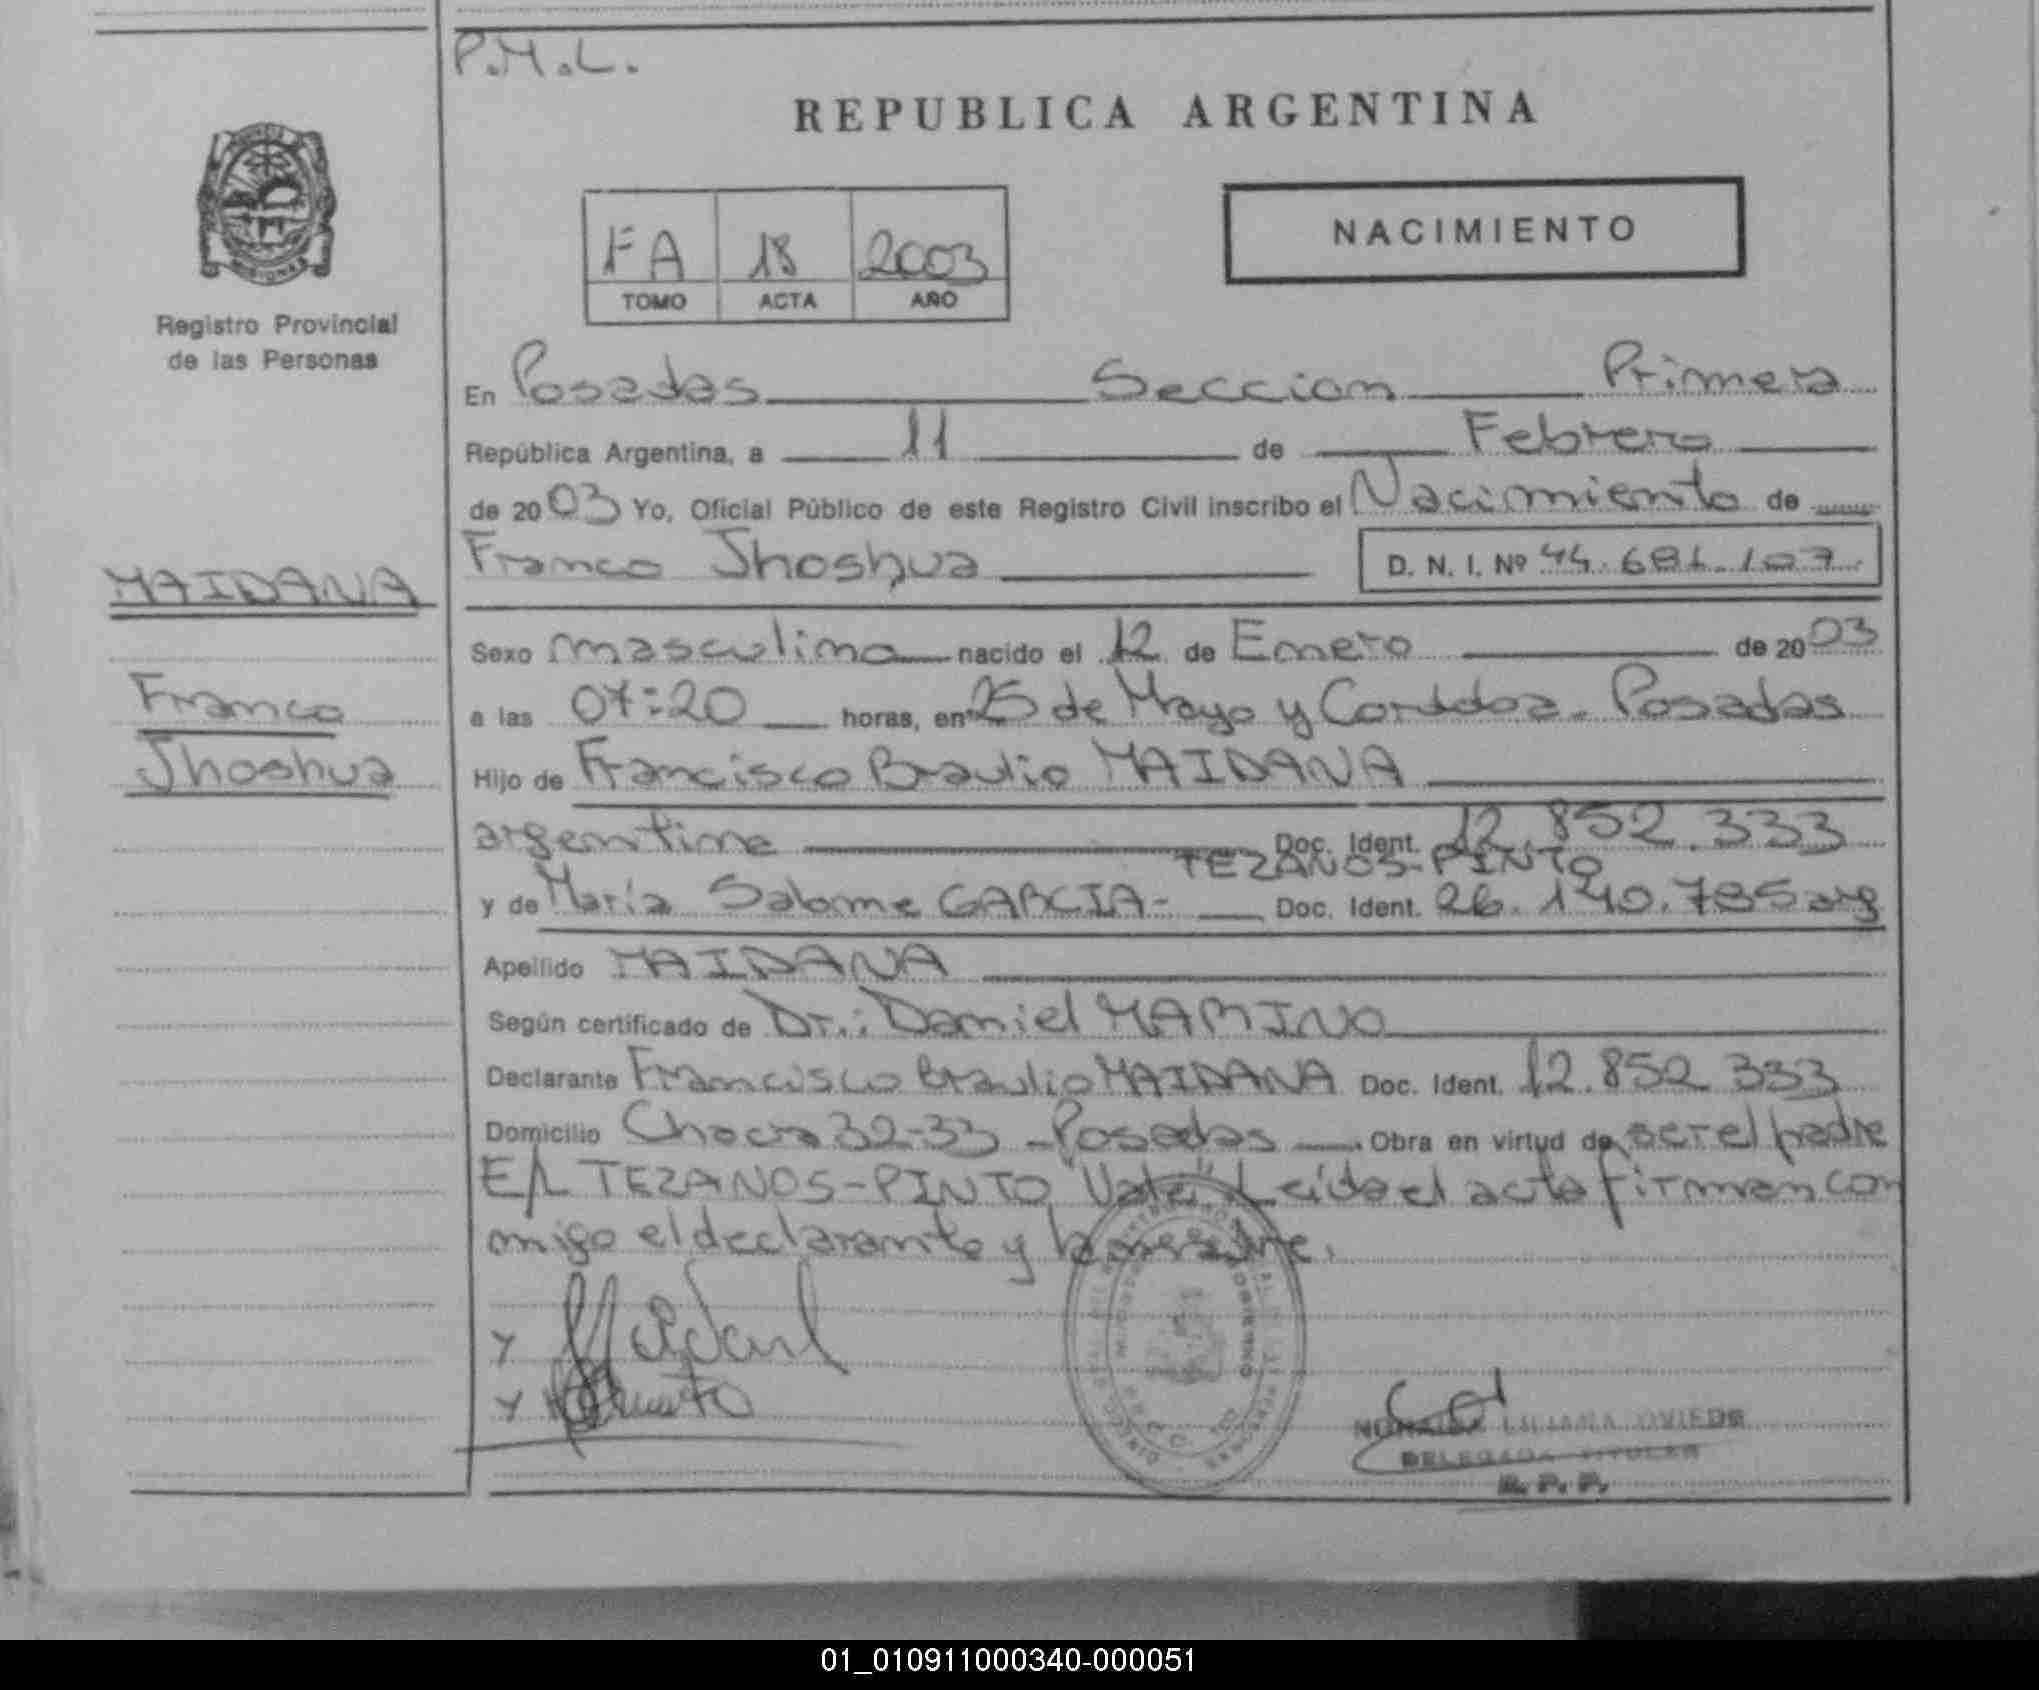 P.M.L.
REPUBLICA ARGENTINA
FA 18 2003
TOMO ACTA AÑO
NACIMIENTO
MISIONES
Registro Provincial
de las Personas
En Posadas Seccion Primera
República Argentina, a 11 de Febrero
de 2003 Yo, Oficial Público de este Registro Civil inscribo el Nacimiento de
Franco Jhoshua D. N. I. Nº 44.681.107
MAIDANA
Franco
Jhoshua
Sexo masculino nacido el 12 de Enero de 2003
a las 07:20 horas, en 25 de Mayo y Cordoba. Posadas
Hijo de Francisco Braulio MAIDANA
argentina Doc. Ident. 12.852.333
TEZANOS-PINTO
y de María Salome GARCIA- Doc. Ident. 26.140.785 arg
Apellido MAIDANA
Según certificado de Dr.: Daniel MARINO
Declarante Francisco Braulio MAIDANA Doc. Ident. 12.852.333
Domicilio Chacra 32-33 -Posadas Obra en virtud de ser el padre
E/L TEZANOS-PINTO Vale. Leida el acta firman con
migo el declarante y la madre.
LILIANA OVIEDO
DELEGADA TITULAR
R. P. P.
01_010911000340-000051